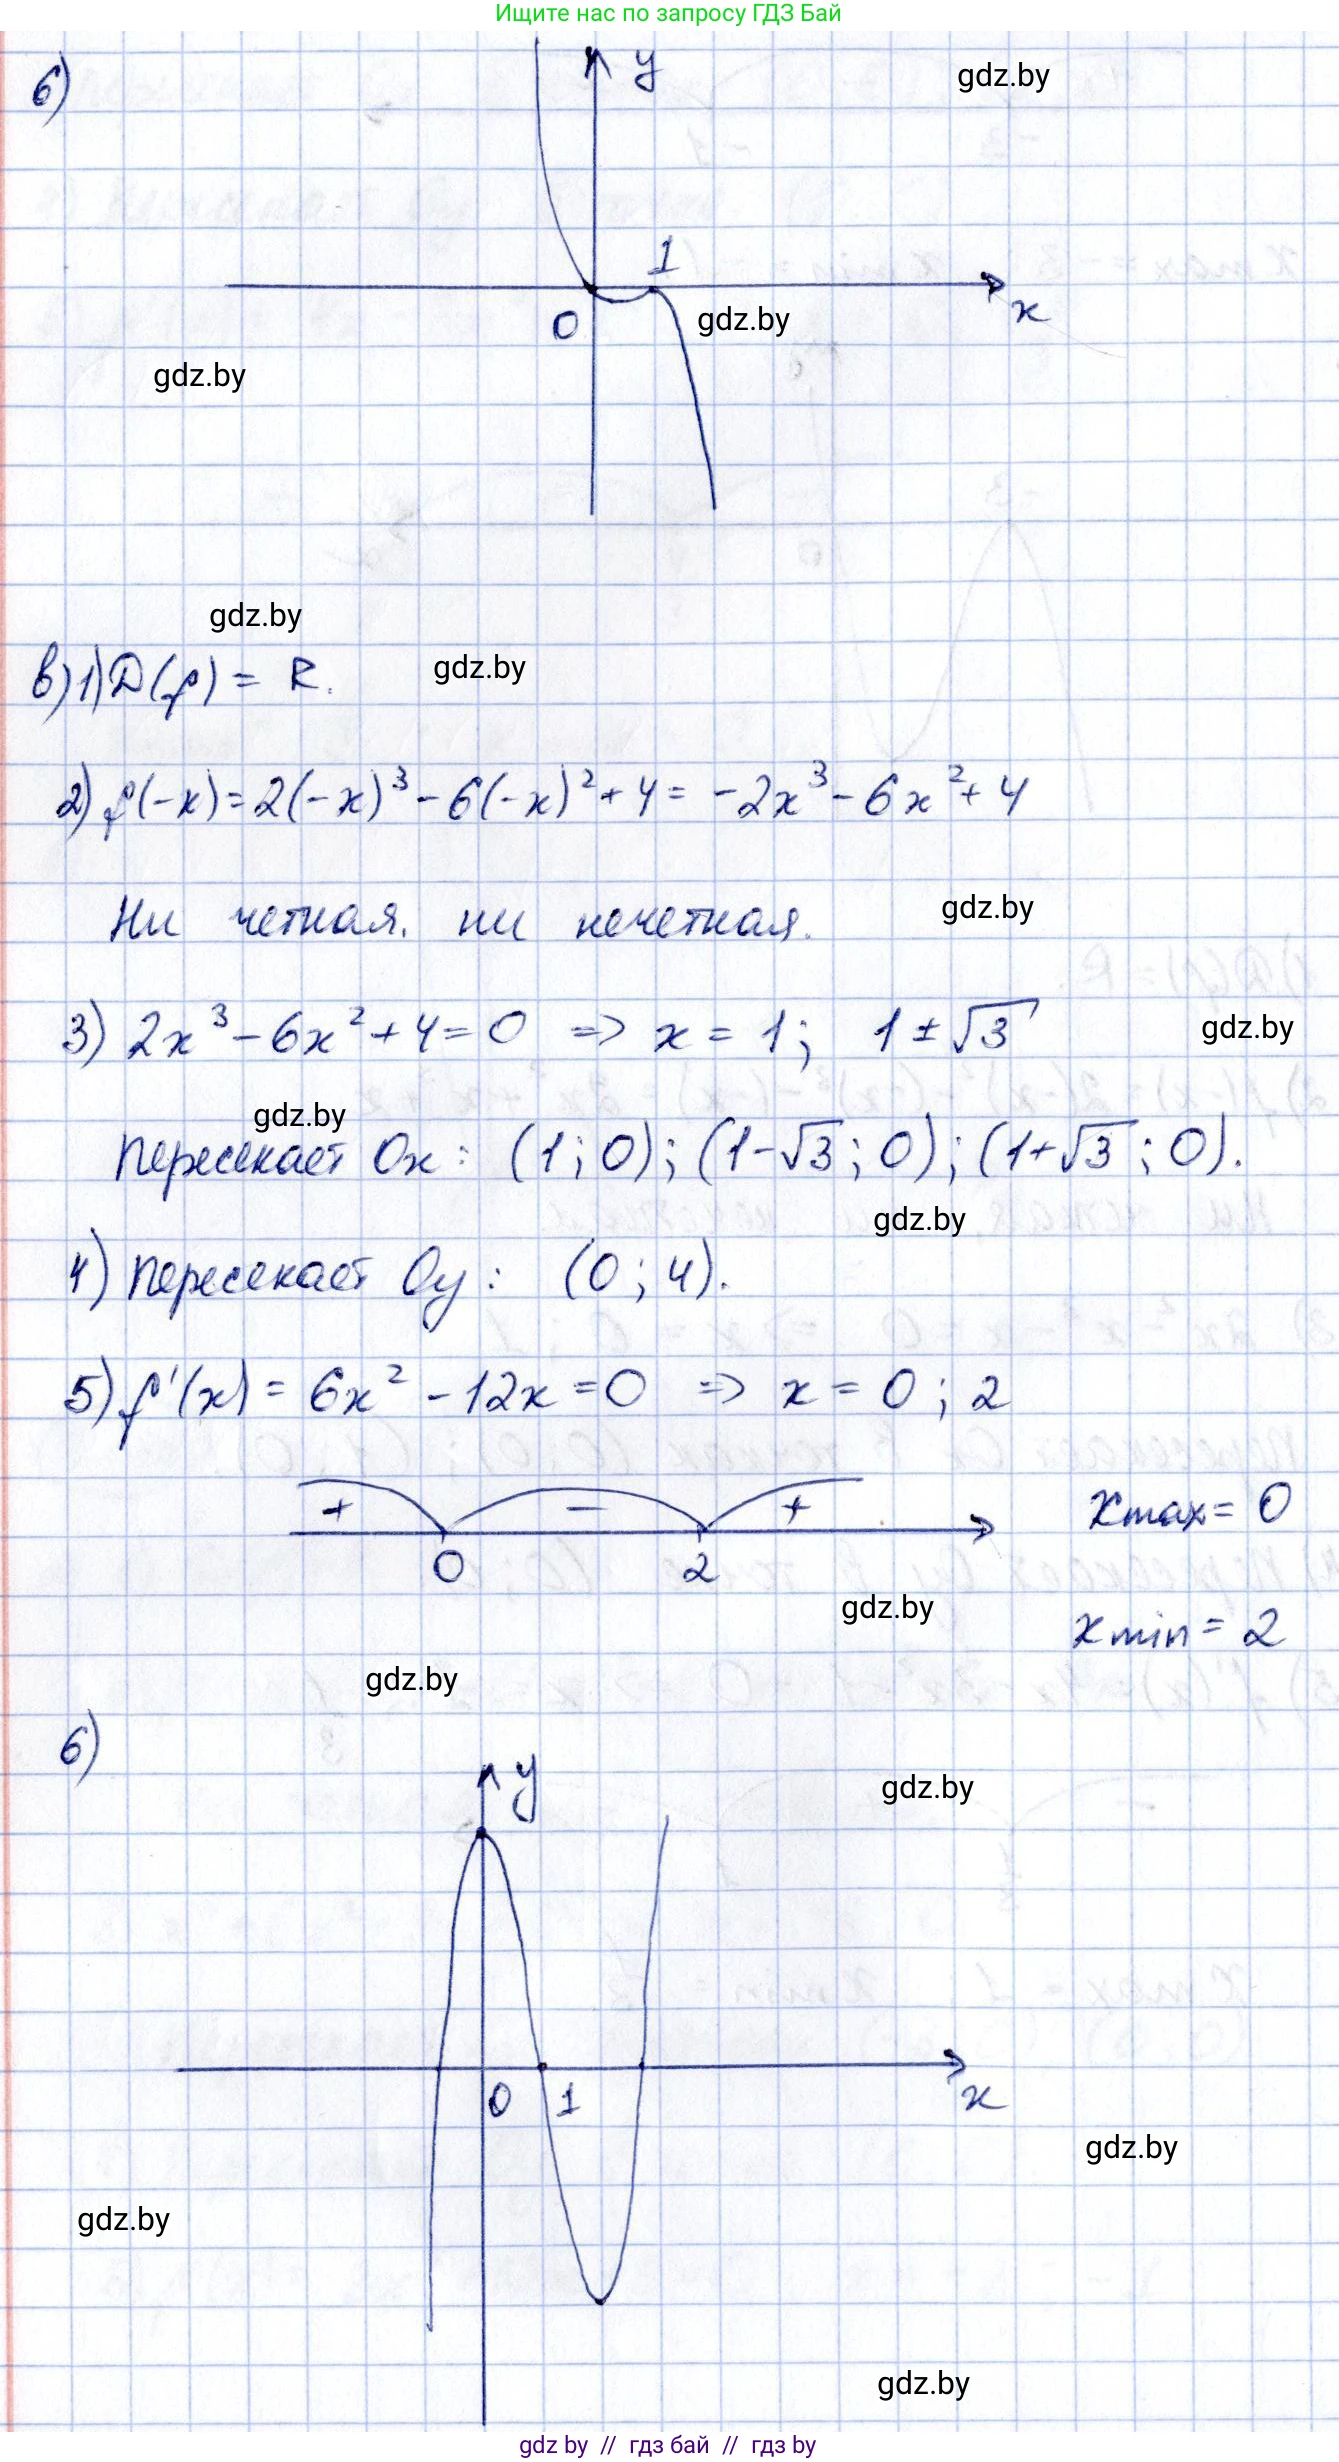 Ищите нас по запросу ГДЗ Бай
6)
y
gdz.by
1
0
x
gdz.by
gdz.by
gdz.by
gdz.by
в) 1) D(f) = R.
2) f(-x) = 2(-x)³ - 6(-x)² + 4 = -2x³ - 6x² + 4
Ни четная. ни нечетная.
gdz.by
3) 2x³ - 6x² + 4 = 0 => x = 1; 1 ± √3
gdz.by
gdz.by
Пересекает Ox: (1; 0); (1-√3; 0); (1+√3; 0).
gdz.by
4) Пересекает Oy: (0; 4).
5) f'(x) = 6x² - 12x = 0 => x = 0; 2
+ - +
0 2
xmax = 0
gdz.by
xmin = 2
gdz.by
6)
y
gdz.by
0 1
x
gdz.by
gdz.by
gdz.by
gdz by // гдз бай // гдз by